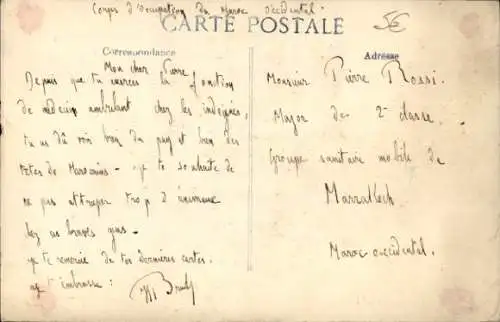 Corps d'Occupation du Maroc Occidental.
5€
CARTE POSTALE
Correspondance
Adresse
Mon cher Pierre
Depuis que tu exerces la fonction
de médecin ambulant chez les indigènes,
tu as dû voir bien du pays et bien des
têtes de Marocains - je te souhaite de
ne pas attraper trop d'
chez ces braves gens -
je te remercie de tes dernières cartes.
je t'embrasse :
Monsieur Pierre Rossi.
Major de 2e classe.
Groupe sanitaire mobile de
Marrakech
Maroc occidental.